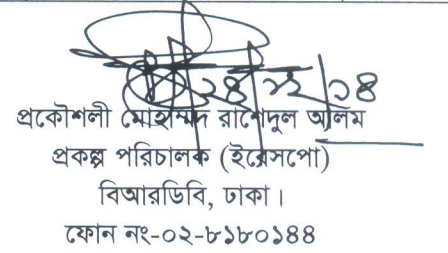 প্রকৌশলী মোহাম্মদ রাশেদুল আলিম
প্রকল্প পরিচালক (ইরেসপো)
বিআরডিবি, ঢাকা।
ফোন নং-০২-৮১৮০১৪৪